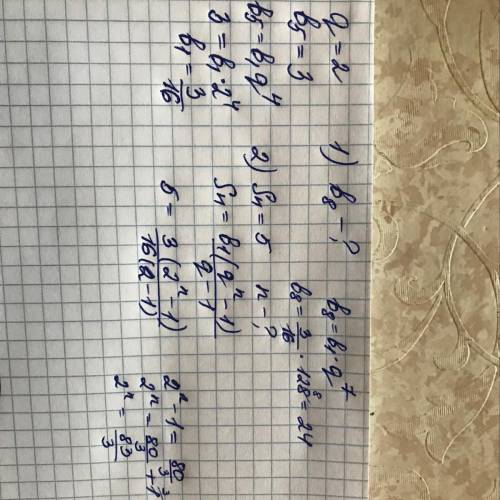 q = 2
b₅ = 3
b₅ = b₁q⁴
3 = b₁ · 2⁴
b₁ = 3/16
1) b₈ - ?
b₈ = b₁ · q⁷
b₈ = 3/16 · 128⁸ = 24
2) Sₙ = 5 n - ?
Sₙ = b₁(qⁿ - 1)/q - 1
5 = 3(2ⁿ - 1)/16(2 - 1)
2ⁿ - 1 = 80/3
2ⁿ = 80/3 + 1³
2ⁿ = 83/3